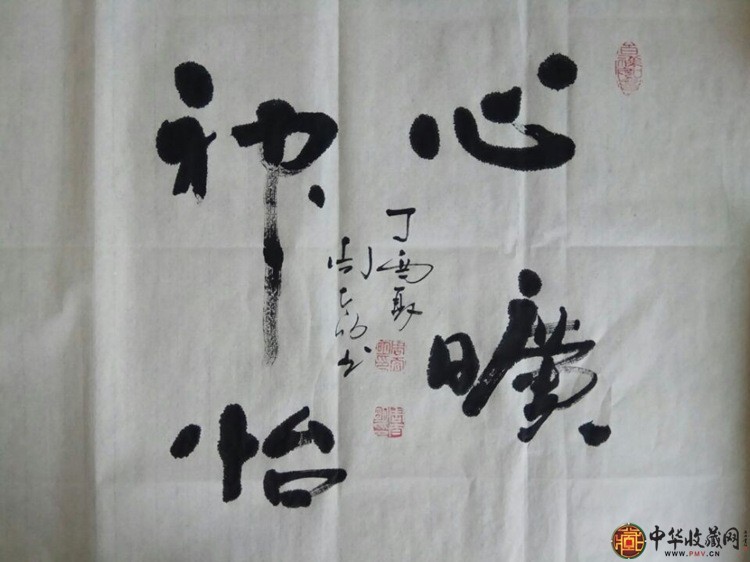 心曠
神怡
丁酉取
中华收藏网
WWW.PMV.CN